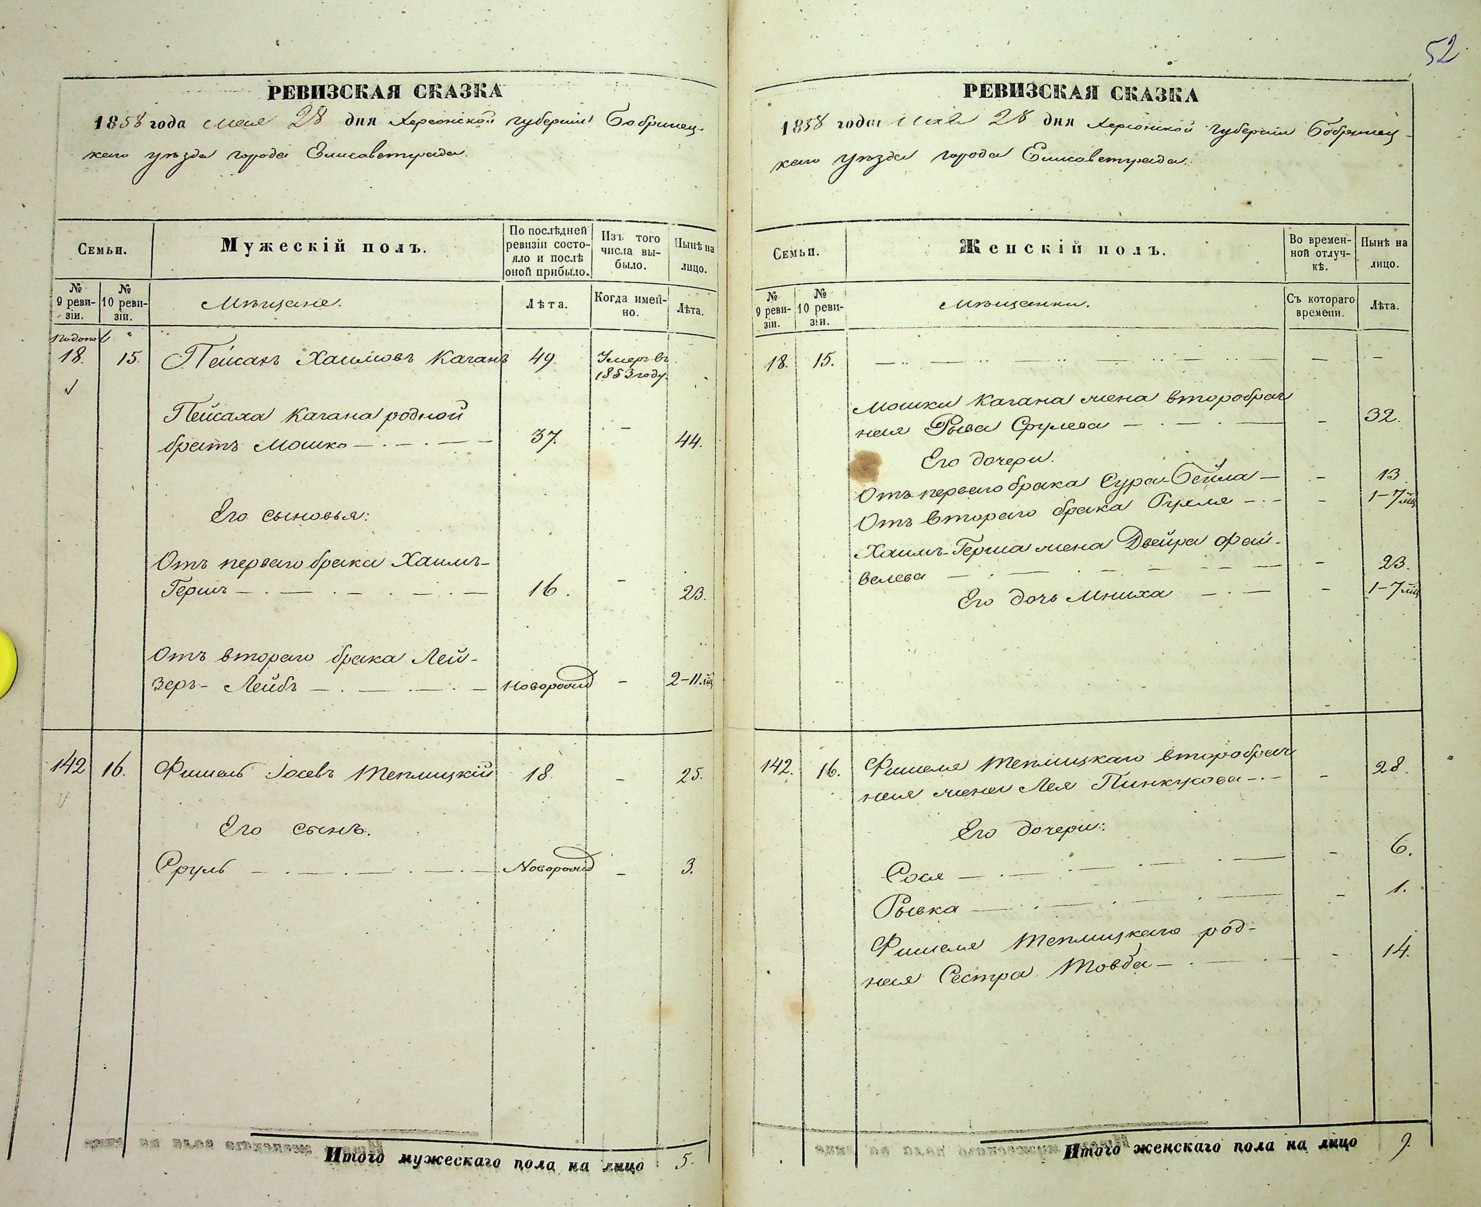 52
РЕВИЗСКАЯ СКАЗКА
1858 года мая 28 дня Херсонской губерніи Бобринец-
каго уѣзда города Елисаветграда.
Семьи.
Мужескій полъ.
По послѣдней ревизіи состояло и послѣ оной прибыло.
Изъ того числа выбыло.
Нынѣ на лицо.
№ 9 ревизіи.
№ 10 ревизіи.
Мѣщане.
Лѣта.
Когда именно.
Лѣта.
18. 15. Пейсахъ Хаимовъ Каганъ 49. Умеръ въ 1853 году.
Пейсаха Кагана родной
братъ Мошко 37. - 44.
Его сыновья:
Отъ перваго брака Хаимъ-
Гершъ 16. - 23.
Отъ втораго брака Лей-
зеръ-Лейбъ новорожд - 2-11 мц
142 16. Фишель Іосевъ Теплицкій 18 - 25.
Его сынъ.
Сруль Новорожд - 3.
Итого мужескаго пола на лицо 5.
РЕВИЗСКАЯ СКАЗКА
1858 года мая 28 дня Херсонской губерніи Бобринец-
каго уѣзда города Елисаветграда.
Семьи.
Женскій полъ.
Во временной отлучкѣ.
Нынѣ на лицо.
№ 9 ревизіи.
№ 10 ревизіи.
Мѣщанки.
Съ котораго времени.
Лѣта.
18. 15. - - -
Мошки Кагана жена второбрач
ная Рыва Срулева - 32.
Его дочери.
Отъ перваго брака Сура Бейла - 13
Отъ втораго брака Гумля - 1-7 мц
Хаимъ-Герша жена Двейра Фай-
велева - 23.
Его дочь Мниха - 1-7 мц
142. 16. Фишеля Теплицкаго второбрач
ная жена Лея Пинкусова - 28.
Его дочери:
Сося - 6.
Рывка - 1.
Фишеля Теплицкаго род-
ная Сестра Товба - 14.
Итого женскаго пола на лицо 9.